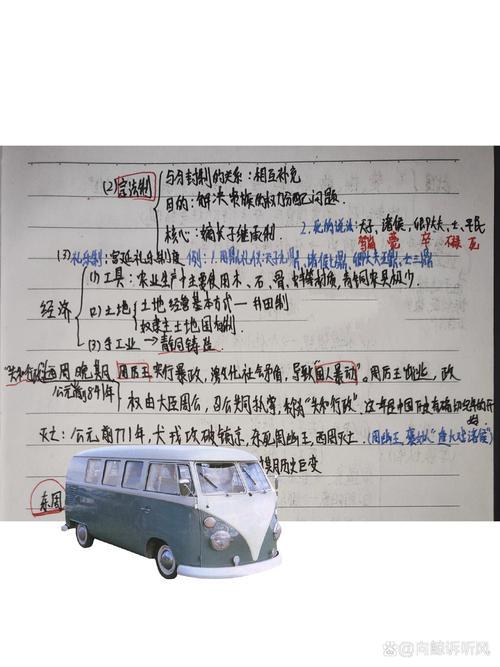 (2) 宗法制
与分封制的关系：相互补充
目的：解决贵族的权力分配问题.
核心：嫡长子继承制 2. 死的说法：天子、诸侯、卿大夫、士、平民
崩 薨 卒 禄 死
(3) 礼乐制：宫廷礼乐制度 例：1. 用鼎礼仪：天子九鼎、诸侯七鼎、卿大夫五鼎、士三鼎
经济
(1) 工具：农业生产主要使用木、石、骨、蚌等材质，青铜农具极少.
(2) 土地
土地经营基本方式—井田制
奴隶主土地国有制.
(3) 手工业 → 青铜铸造
"共和行政" 西周晚期 周厉王实行暴政，激化社会矛盾，导致"国人暴动"。周厉王出逃，政
公元前841年 权由大臣周公，召公共同执掌，称为"共和行政"。这一年是中国历史有确切纪年的开始.
灭亡：公元前771年，犬戎攻破镐京，杀死周幽王，西周灭亡.(周幽王 褒姒 "烽火戏诸侯")
东周 期历史巨变
@向鲸诉听风